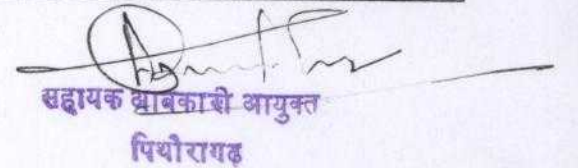 सहायक आबकारी आयुक्त
पिथौरागढ़